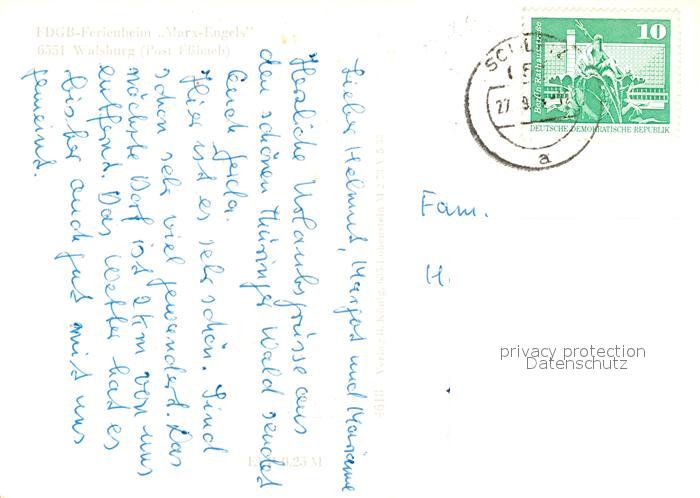 FDGB-Ferienheim „Marx-Engels"
6551 Walsburg (Post Eßbach)
Lieber Helmut, Margot und Marianne
Herzliche Urlaubsgrüsse aus
den schönen Thüringer Wald sendet
Euch Gerda.
Hier ist es sehr schön. Sind
schon sehr viel gewandert. Das
nächste Dorf ist 2 km von uns
entfernt. Das Wetter hat es
bisher auch gut mit uns
gemeint.
Verlag H. König, 685 Lobenstein
0,25 M
10
Berlin, Rathausstraße
DEUTSCHE DEMOKRATISCHE REPUBLIK
SCHLEIZ
27.9.
a
Fam.
H.
privacy protection
Datenschutz